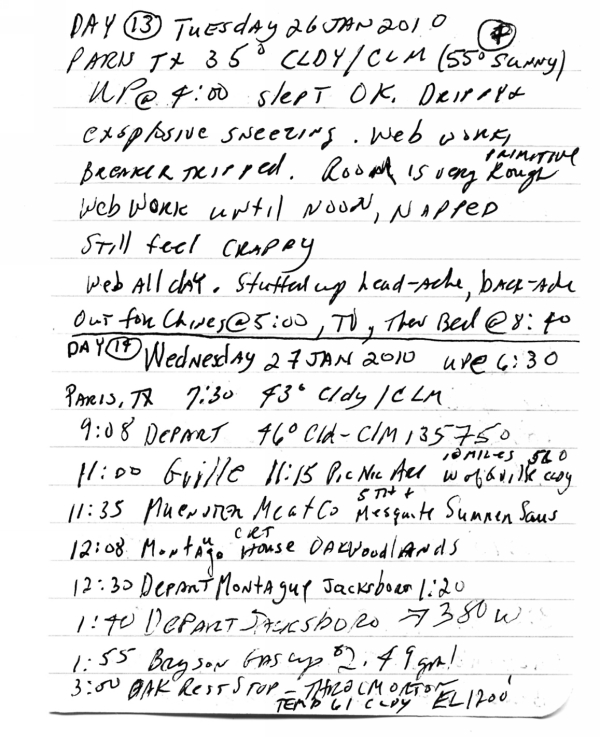 DAY 13 TUESDAY 26 JAN 2010
PARIS TX 35° CLDY/CLM (55° SUNNY)
UP@ 4:00 SLEPT OK. DRIPPY &
EXSPLOSIVE SNEEZING. WEB WORK,
BREAKER TRIPPED. ROOM IS VERY ROUGH PRIMITIVE
WEB WORK UNTIL NOON, NAPPED
STILL FEEL CRAPPY
WEB ALL DAY. STUFFED UP HEAD-ACHE, BACK-ACHE
OUT FOR CHINES@5:00, TV, THEN BED @8:40
DAY 14 WEDNESDAY 27 JAN 2010 UP@ 6:30
PARIS, TX 7:30 43° CLDY/CLM
9:08 DEPART 46° CLD-CLM 135750
11:00 GVILLE 11:15 PICNIC AREA 10 MILES W OF GVILLE CLDY
11:35 MUENSTER MEAT CO MESQUITE SUMMER SAUS
12:08 MONTAGUE CRT HOUSE OAKWOODLANDS
12:30 DEPART MONTAGUE JACKSBORO 1:20
1:40 DEPART JACKSBORO → 380 W
1:55 BRYSON GAS UP $2.49 gal
3:00 OAK REST STOP - THROCMORTON
TEMP 61 CLDY EL1200'